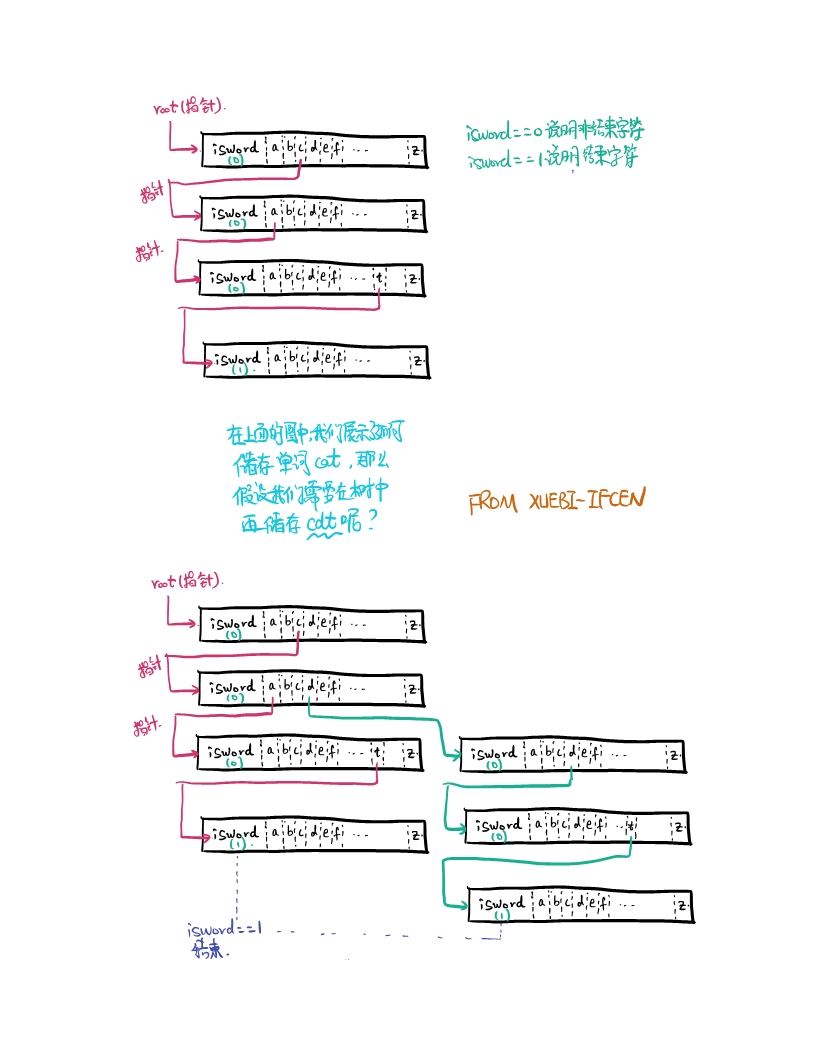 root(指针).
isword==0说明非结束字符
isword==1说明结束字符
isword a b c d e f ... z.
(0)
指针
isword a b c d e f ... z.
(0)
指针.
isword a b c d e f ... t z.
(0)
isword a b c d e f ... z.
(1).
在上面的图中,我们展示了如何
储存单词cat,那么
假设我们需要在树中
再储存cdt呢?
FROM XUEBI-IFCEN
root(指针).
isword a b c d e f ... z.
(0)
指针
isword a b c d e f ... z.
(0)
指针.
isword a b c d e f ... t z.
(0)
isword a b c d e f ... z.
(0)
isword a b c d e f ... z.
(1).
isword a b c d e f ... t z.
(0)
isword a b c d e f ... z.
(1)
isword==1
结束.